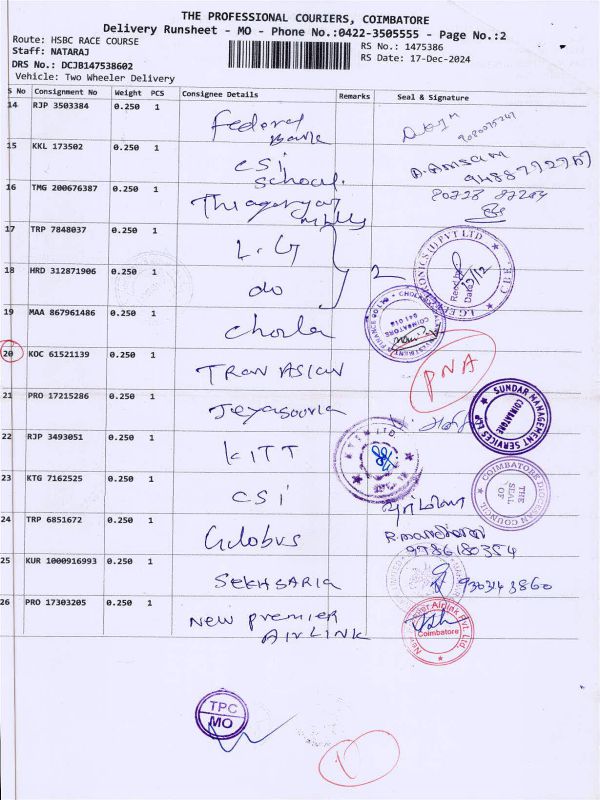 THE PROFESSIONAL COURIERS, COIMBATORE
Delivery Runsheet - MO - Phone No.:0422-3505555 - Page No.:2
Route: HSBC RACE COURSE
Staff: NATARAJ
RS No.: 1475386
RS Date: 17-Dec-2024
DRS No.: DCJB147538602
Vehicle: Two Wheeler Delivery
S No Consignment No Weight PCS Consignee Details Remarks Seal & Signature
14 RJP 3503384 0.250 1 Federal Bank
15 KKL 173502 0.250 1 CSI School.
16 TMG 200676387 0.250 1 Thiagarajar Mills
17 TRP 7848037 0.250 1 L.G
18 HRD 312871906 0.250 1 do 2
19 MAA 867961486 0.250 1 Chola
20 KOC 61521139 0.250 1 TRAN ASIAN PNA
21 PRO 17215286 0.250 1 Jeyasooria
SUNDAR MANAGEMENT SERVICES LLP COIMBATORE
22 RJP 3493051 0.250 1 KITT
23 KTG 7162525 0.250 1 CSI
THE SEAL OF
24 TRP 6851672 0.250 1 Globus R.manoharan
9786180354
25 KUR 1000916993 0.250 1 SEKHSARIA
26 PRO 17303205 0.250 1 NEW Premier AIRLINK
Coimbatore
TPC
MO
1